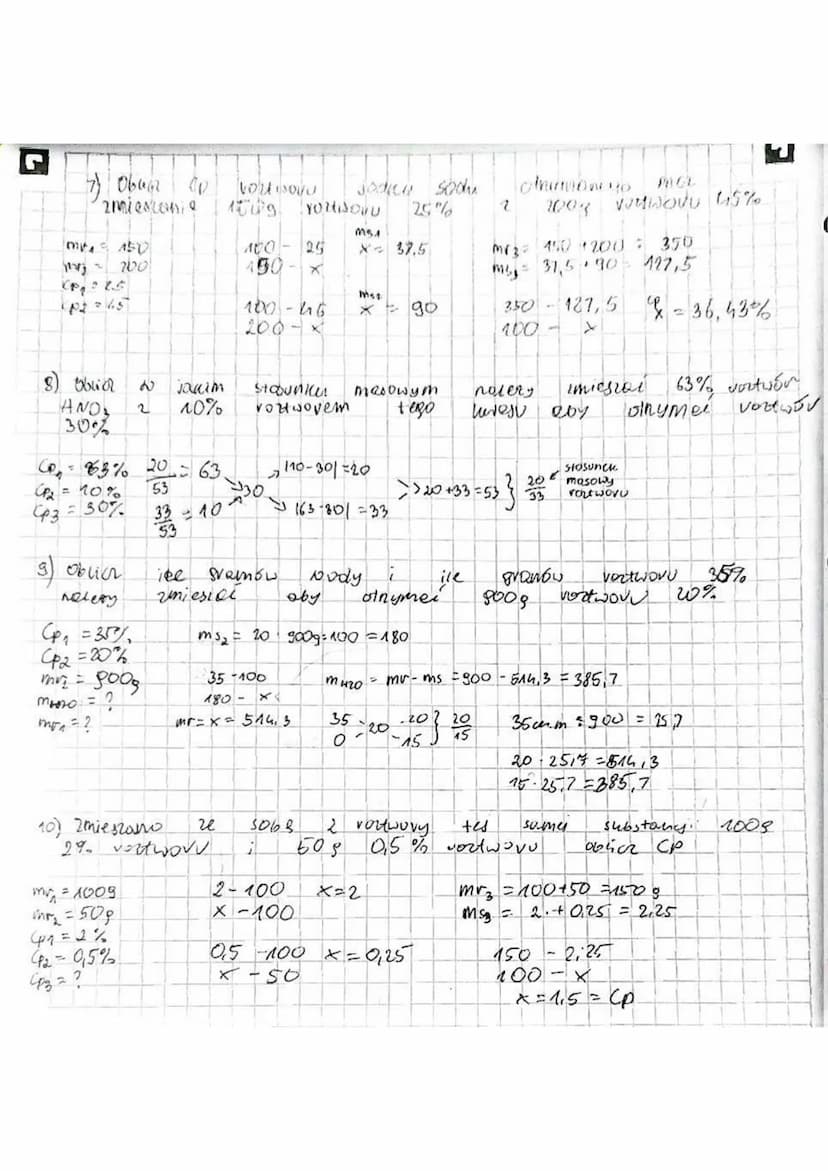 7) Oblicz Cp roztworu jodku sodu otrzymanego przez
zmieszanie 150g roztworu 25% z 200g roztworu 45%
mr1 = 150
mr2 = 200
Cp1 = 25
Cp2 = 45
100 - 25
150 - x
ms1
x = 37,5
100 - 45
200 - x
ms2
x = 90
mr3 = 150 + 200 = 350
ms3 = 37,5 + 90 = 127,5
350 - 127,5
100 - x
Cp
x = 36,43%
8) Oblicz w jakim stosunku masowym należy zmieszać 63% roztwór
HNO3 z 10% roztworem tego kwasu aby otrzymać roztwór
30%
Cp1 = 63%
Cp2 = 10%
Cp3 = 30%
20/53 = 63
33/53 = 10
30
|10-30| = 20
|63-30| = 33
>> 20 + 33 = 53 } 20/33
stosunek
masowy
roztworu
9) Oblicz ile gramów wody i ile gramów roztworu 35%
należy zmieszać aby otrzymać 900g roztworu 20%
Cp1 = 35%
Cp2 = 20%
mr2 = 900g
mH2O = ?
mr1 = ?
ms2 = 20 · 900g : 100 = 180
35 - 100
180 - x
mr = x = 514,3
mH2O = mr - ms = 900 - 514,3 = 385,7
35 > 20 - 20
0 > 20 - 15 } 20/15
900 = 25,7
20 · 25,7 = 514,3
15 · 25,7 = 385,7
10) Zmieszano ze sobą 2 roztwory tej samej substancji 100g
2% roztworu i 50g 0,5% roztworu oblicz CP
mr1 = 100g
mr2 = 50g
Cp1 = 2%
Cp2 = 0,5%
Cp3 = ?
2 - 100
x - 100
x = 2
0,5 - 100
x - 50
x = 0,25
mr3 = 100 + 50 = 150g
ms3 = 2 + 0,25 = 2,25
150 - 2,25
100 - x
x = 1,5 = Cp